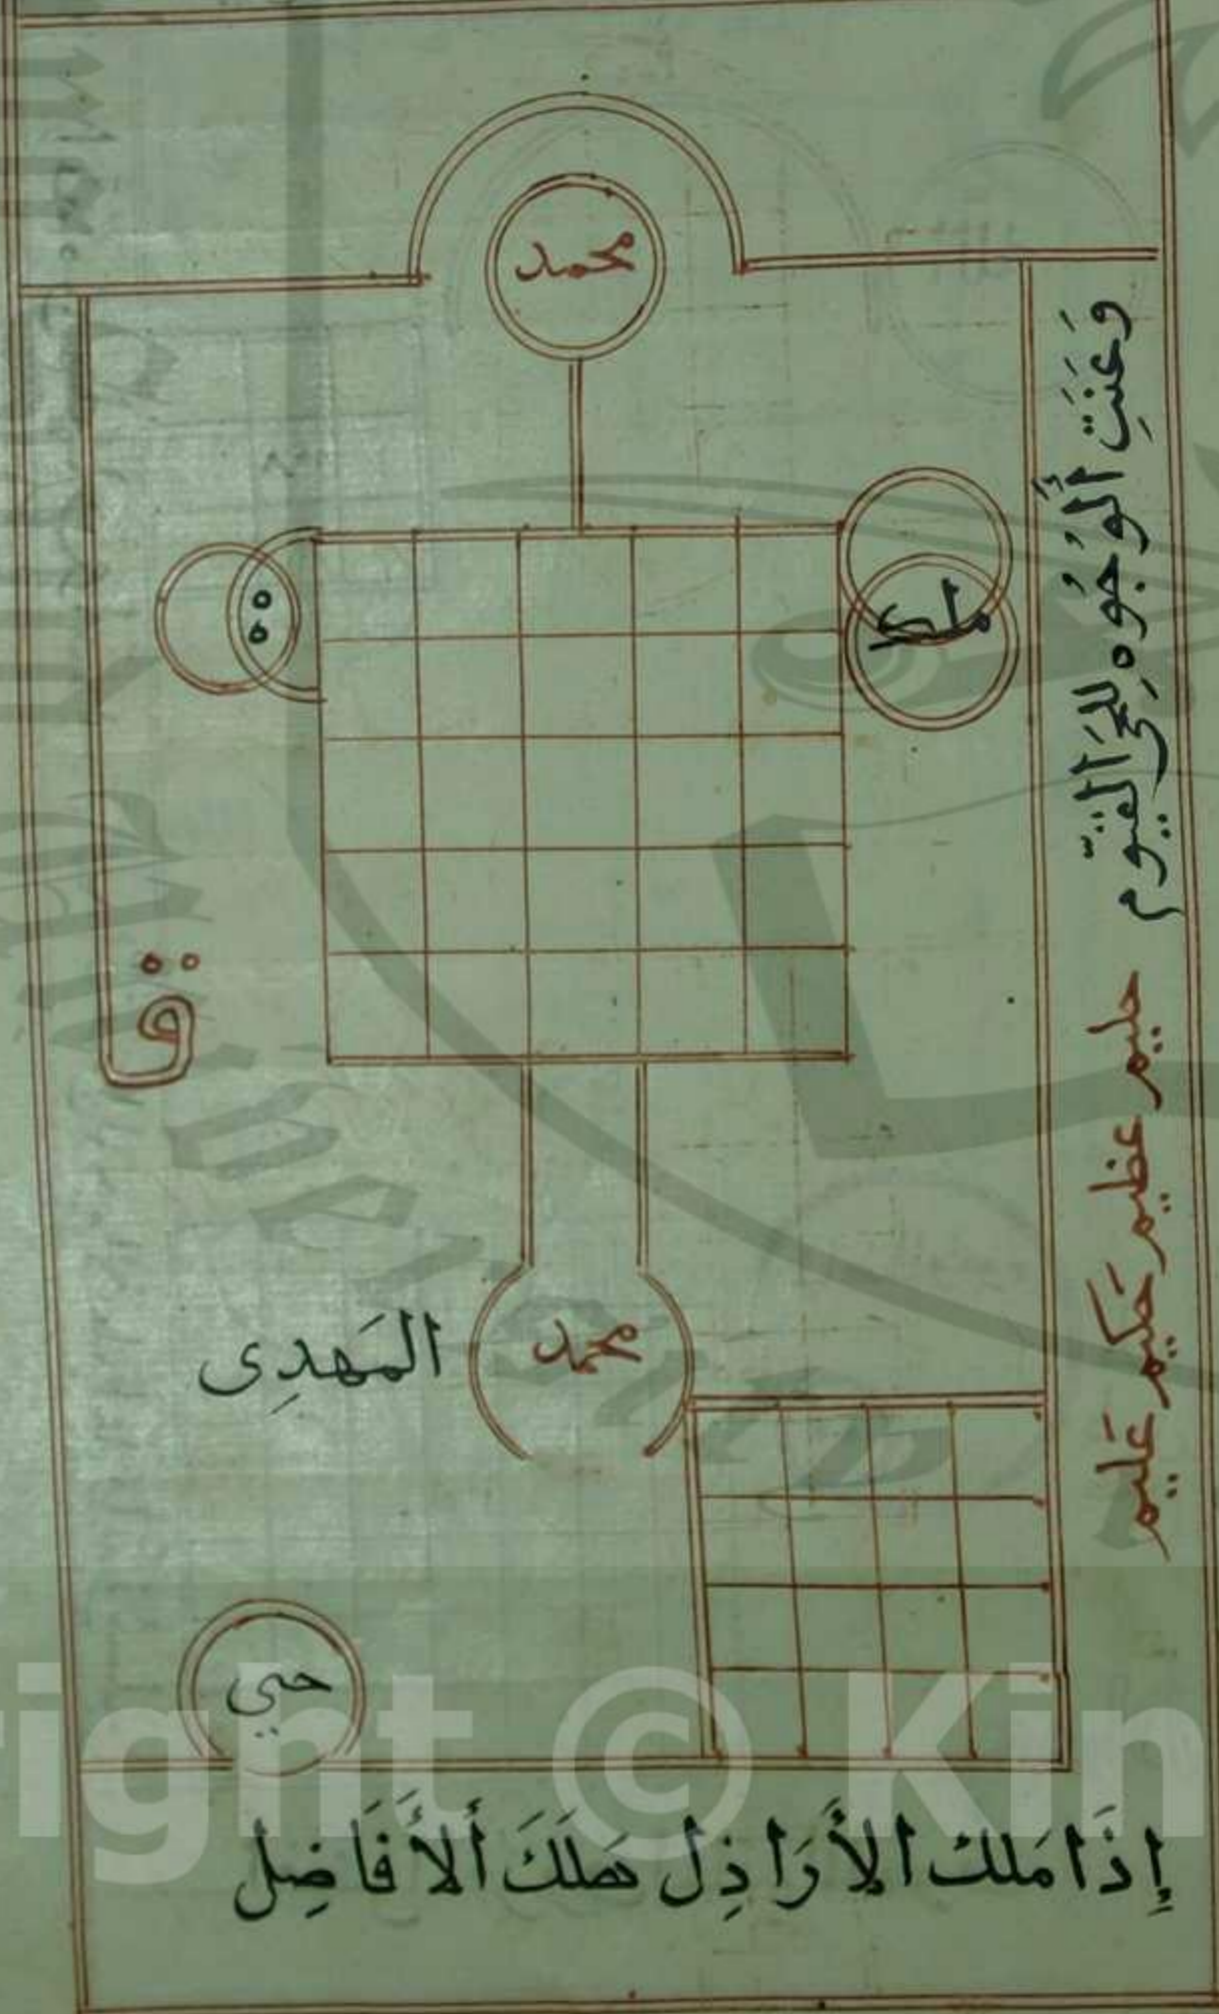 محمد
وَعَنَتِ الْوُجُوهُ لِلْحَيِّ الْقَيُّومِ
حليم عظيم حكيم عليم
ق
محمد
المَهدِى
حيي
إِذَا مَلك الأَرَاذِل هَلَكَ أَلأَفَاضِل
ight © Kin